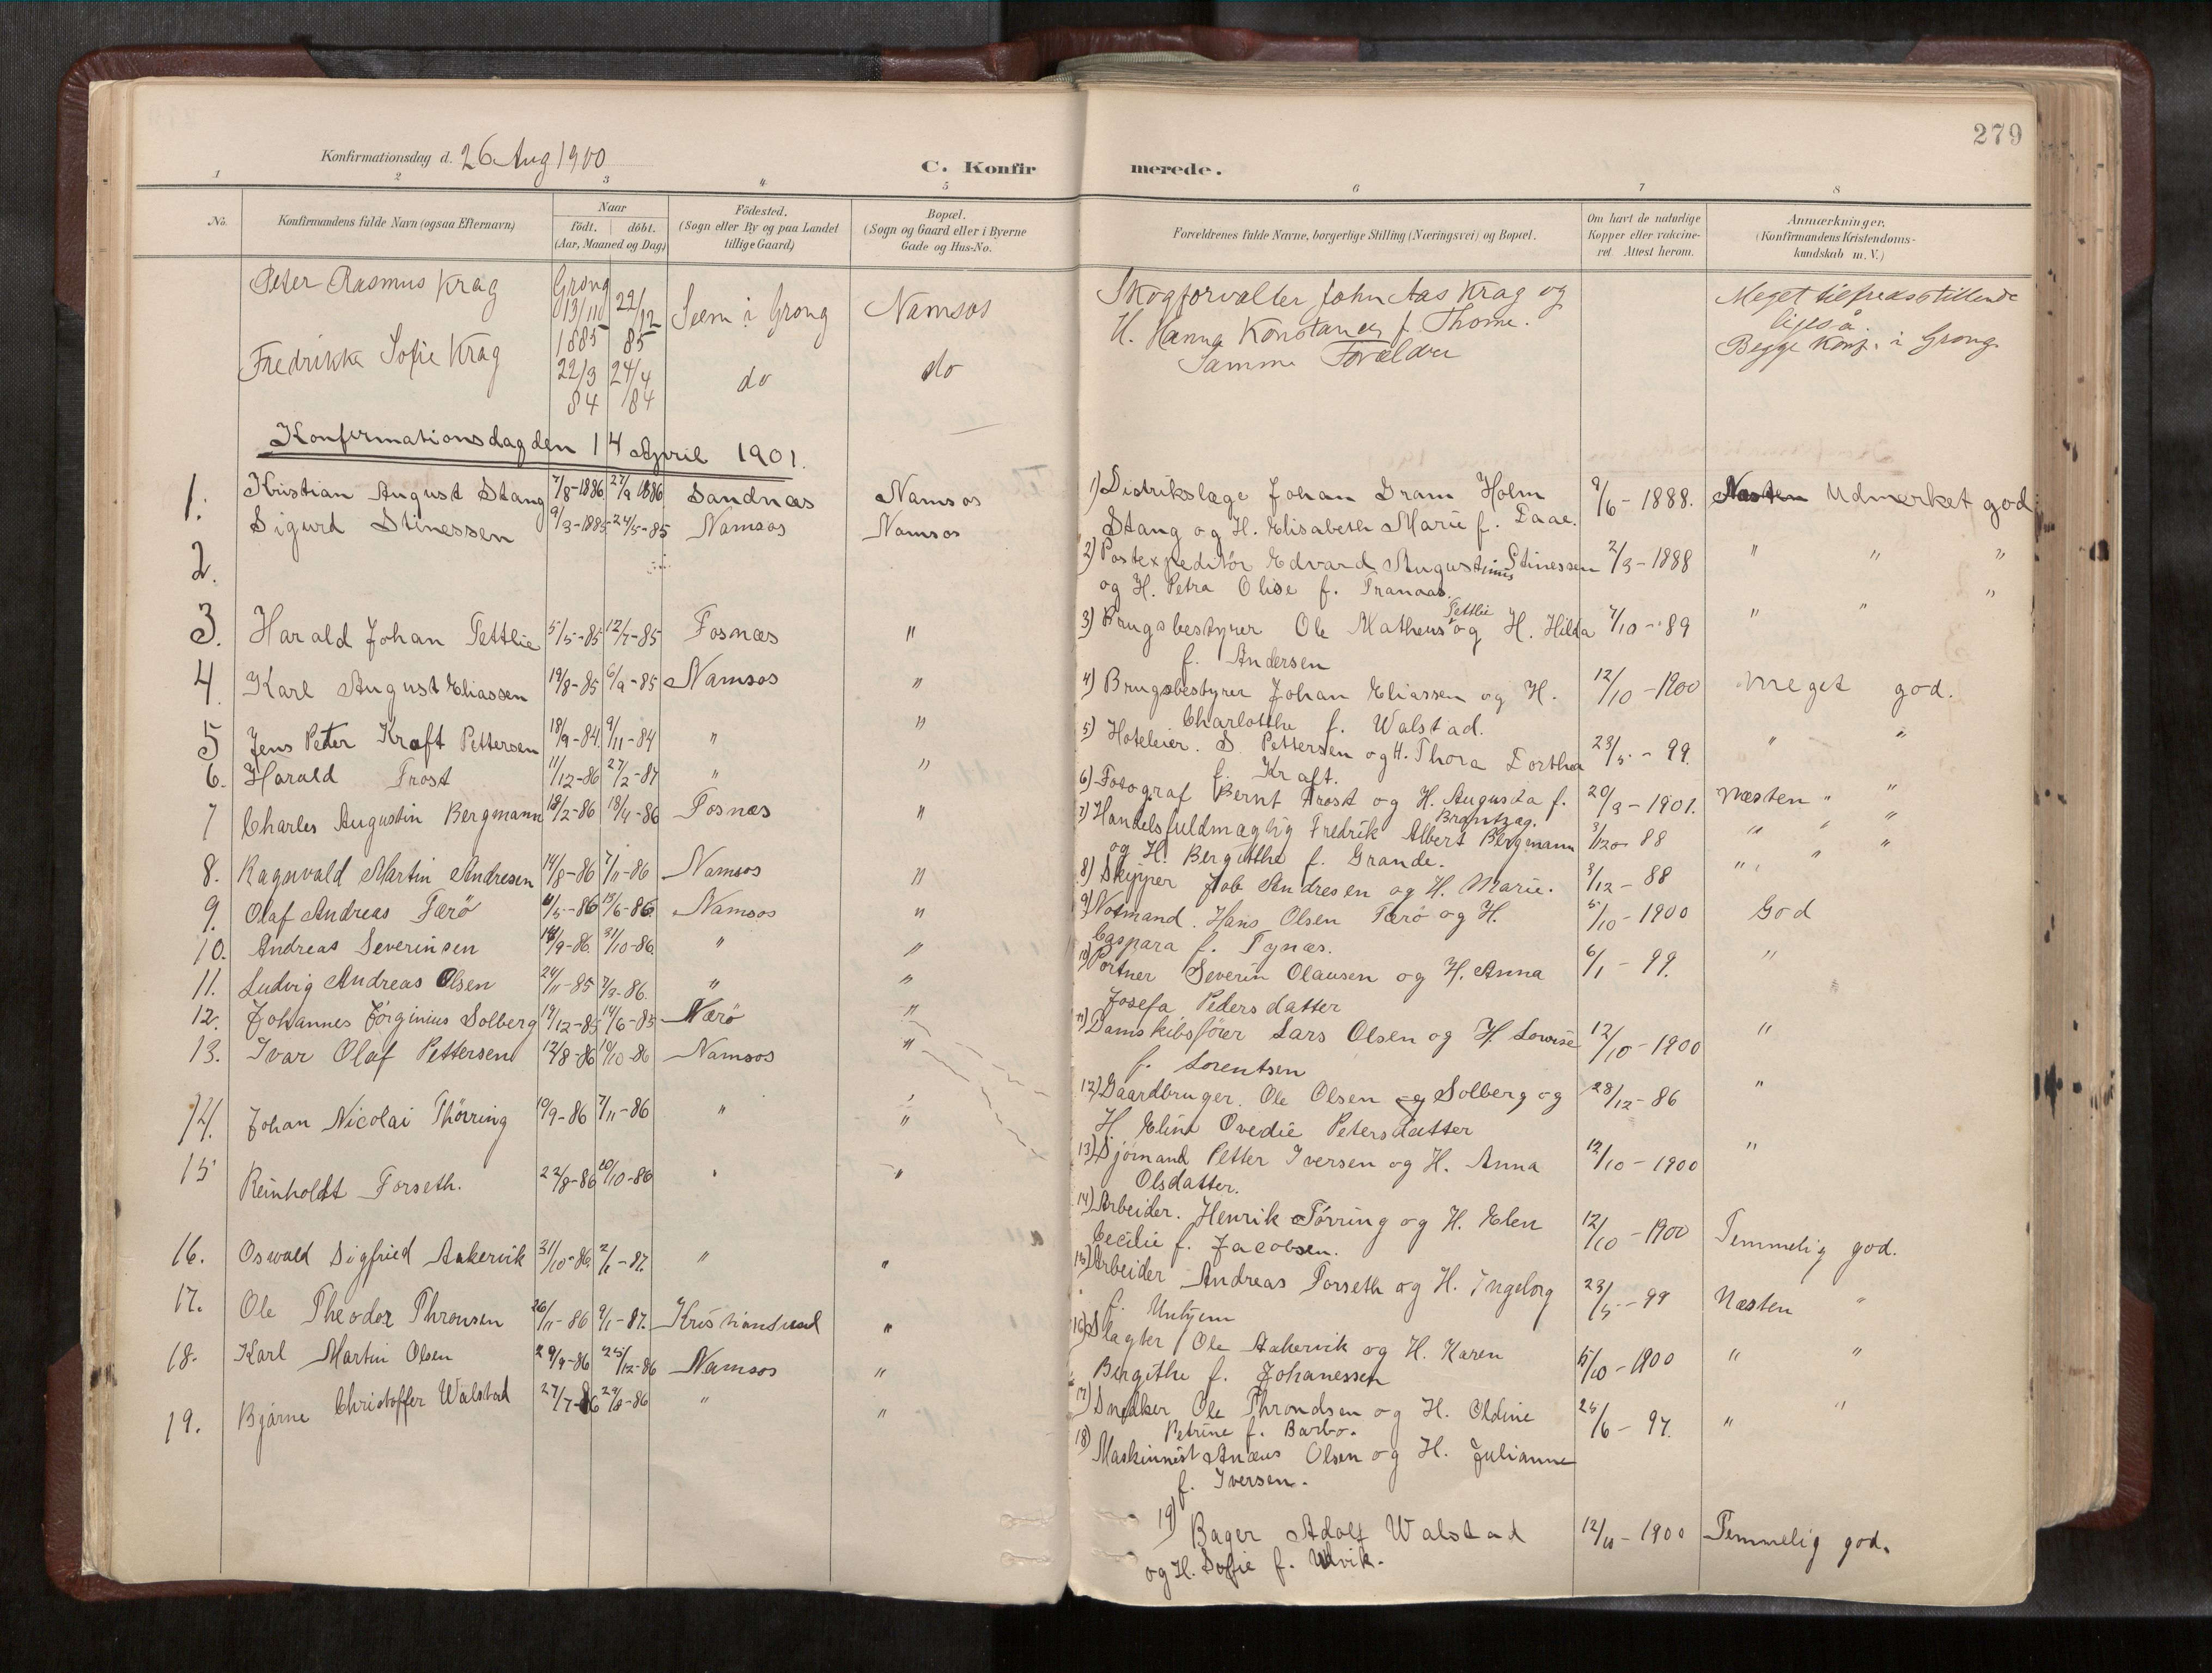 279
Konfirmationsdag d. 26 Aug 1900
C. Konfirmerede.
1 2 3 4 5 6 7 8
No.
Konfirmandens fulde Navn (ogsaa Efternavn)
Naar
födt. döbt.
(Aar, Maaned og Dag)
Födested.
(Sogn eller By og paa Landet
tillige Gaard)
Bopæl.
(Sogn og Gaard eller i Byerne
Gade og Hus-No.
Forældrenes fulde Navne, borgerlige Stilling (Næringsvei) og Bopæl.
Om havt de naturlige
Kopper eller vakcine-
ret. Attest herom.
Anmærkninger.
(Konfirmandens Kristendoms-
kundskab m. V.)
Peter Rasmus Krag Grong 13/11 1885 22/12 85 Seem i Grong Namsos
Fredrikke Sofie Krag 22/3 84 24/4 84 do do
Skogforvalter John Aas Krag og
H. Hanna Konstance f. Thome.
Samme Forældre
Meget tilfredsstillende
ligeså.
Begge Konf. i Grong.
Konfirmationsdag den 14 April 1901.
1. Kristian August Stang 7/8-1886 27/9 1886 Sandnæs Namsos
2. Sigurd Stinessen 9/3-1885 24/5-85 Namsos Namsos
3. Harald Johan Tettlie 5/5-85 12/7-85 Fosnæs "
4. Karl August Eliassen 19/8-85 6/9-85 Namsos "
5 Jens Peter Kraft Pettersen 18/9-84. 9/11-84 " "
6. Harald Frost 11/12-86 27/2-87 " "
7 Charles Augustin Bergmann 18/2-86 18/4-86 Fosnæs "
8. Ragnvald Martin Andresen 14/8-86 7/11-86 Namsos "
9. Olaf Andreas Færö 6/5-86 13/6-86 Namsos "
10. Andreas Severinsen 14/9-86. 31/10-86. " "
11. Ludvig Andreas Olsen 24/11-85 7/3-86. " "
12. Johannes Jörginius Solberg 19/12-85 14/6-85 Nærö "
13. Ivar Olaf Pettersen 12/8-86 10/10-86 Namsos "
14. Johan Nicolai Thörring 10/9-86 7/11-86 " "
15 Reinholdt Forseth. 22/8-86 10/10-86 " "
16. Oswald Sigfried Aakervik 31/10-86. 2/1-87. " "
17. Ole Theodor Thronsen 26/11-86 9/1-87. Kristiansund "
18. Karl Martin Olsen 29/9-86 25/12-86 Namsos "
19. Bjarne Christoffer Walstad 27/7-86 29/8-86 " "
1) Distrikslæge Johan Gram Holm 9/6-1888. Næsten Udmerket god
Stang og H. Elisabeth Marie f. Daae.
2) Postexpeditör Edvard Augustinus Stinessen 2/3-1888 " " "
og H. Petra Olise f. Tranaas. "
3) Brugsbestyrer Ole Matheus Tettlie og H. Hilda 7/10-89 " "
f. Andersen
4) Brugsbestyrer Johan Eliassen og H. 12/10-1900 Meget god.
Charlotthe f. Walstad.
5) Hoteleier. S. Pettersen og H. Thora Dorthea 23/5-99. " "
f. Kraft.
6) Fotograf Bernt Frost og H. Augusta f. 20/3-1901. Næsten " "
Brantzæg.
7) Handelsfuldmægtig Fredrik Albert Bergmann 3/12 88 " " "
og H. Bergitthe f. Grande.
8) Skipper Job Andresen og H. Marie. 3/12-88 " " "
9) Notmand. Hans Olsen Færö og H. 5/10-1900 God
Caspara f. Tynæs.
10) Portner Severin Olausen og H. Anna 6/1-99. "
Josefa Pedersdatter
11) Damskibsförer Lars Olsen og H. Lowise 12/10-1900 "
f. Lorentsen
12) Gaardbruger. Ole Olsen og Solberg og 28/12-86 "
H Eline Ovedie Petersdatter
13) Sjømand Petter Iversen og H. Anna 12/10-1900 "
Olsdatter.
14) Arbeider. Henrik Törring og H. Elen 12/10-1900 Temmelig god.
Cecilie f. Jacobsen.
15) Arbeider Andreas Forseth og H. Ingeborg 23/5-99 Næsten "
f. Unhjem
16) Slagter Ole Aakervik og H. Karen 5/10-1900 " "
Bergithe f. Johanessen
17) Snedker Ole Throndsen og H. Oldine 25/6-97. " "
Petrine f. Barbo.
18) Maskinnist Anæus Olsen og H. Julianne
f. Iversen.
19) Bager Adolf Walstad 12/10-1900 Temmelig god.
og H. Sofie f. Ulvik.